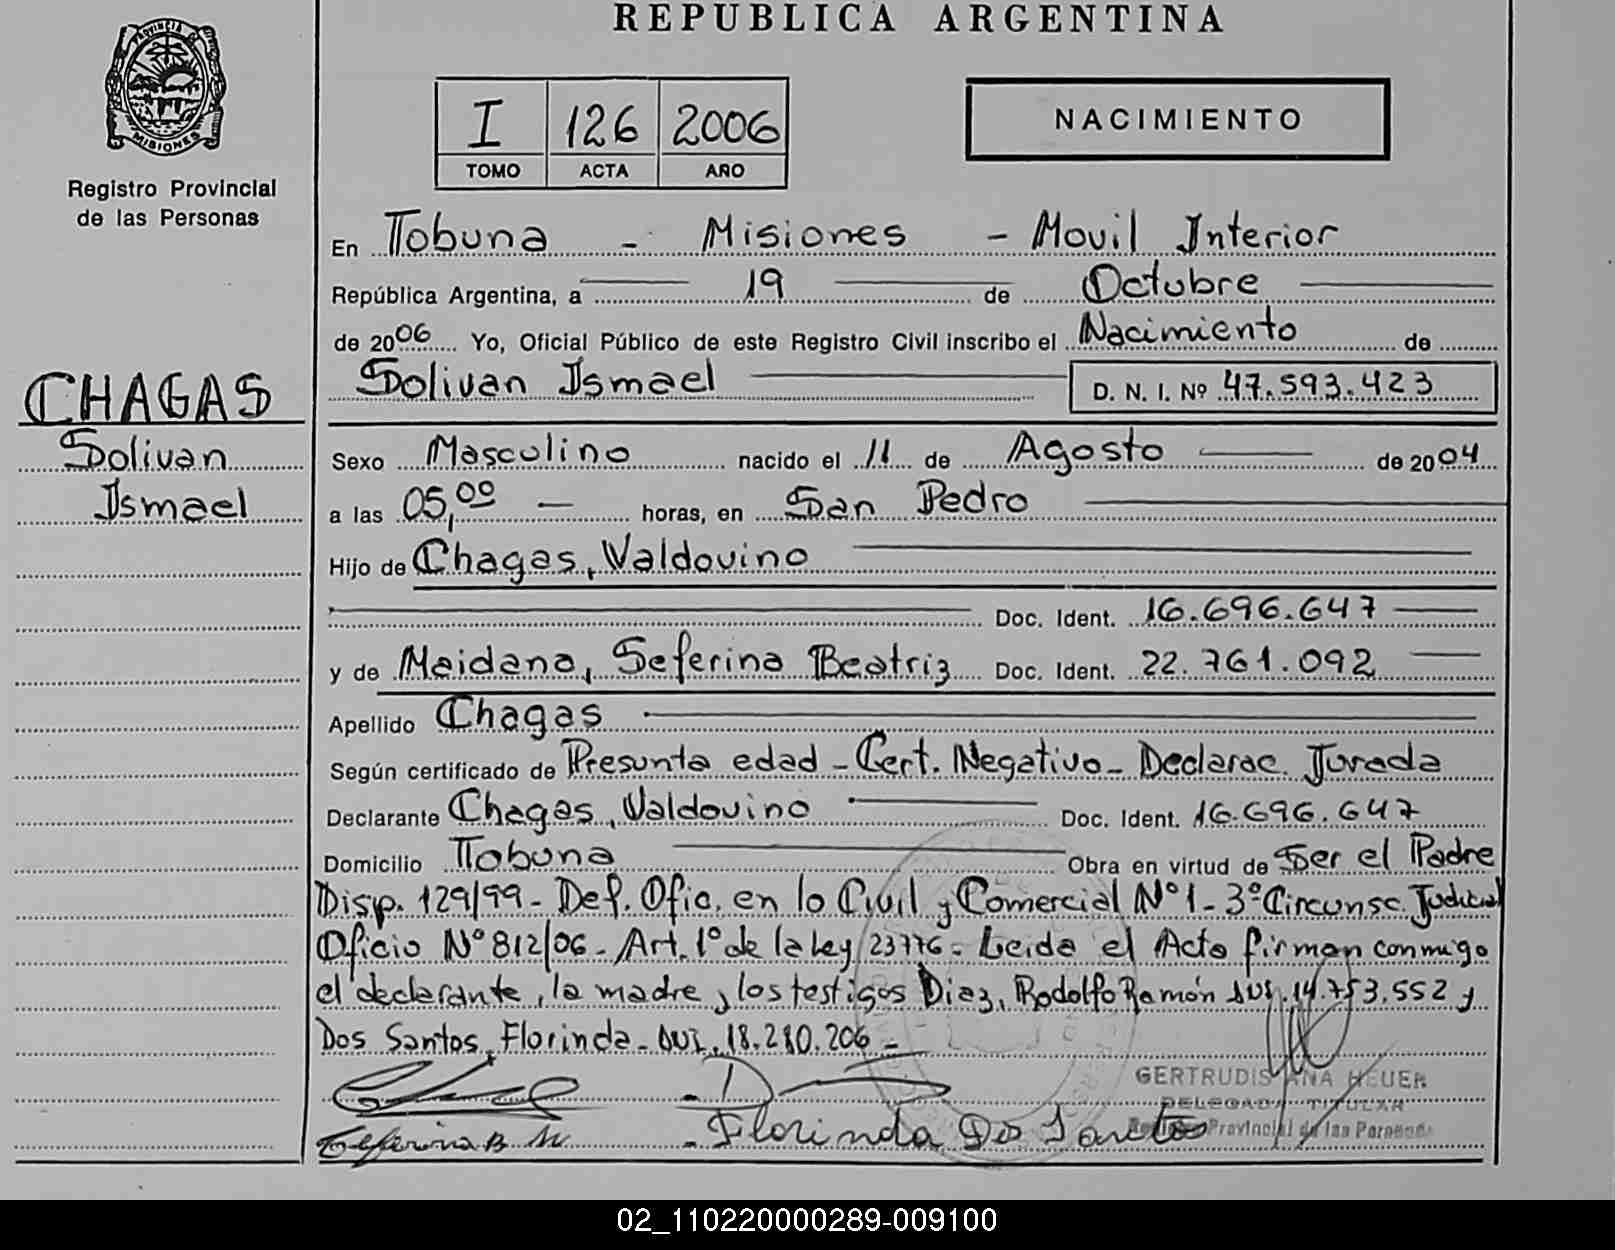 REPUBLICA ARGENTINA
PROVINCIA DE
MISIONES
Registro Provincial
de las Personas
I 126 2006
TOMO ACTA AÑO
NACIMIENTO
En Tobuna - Misiones - Movil Interior
República Argentina, a 19 de Octubre
de 2006 Yo, Oficial Público de este Registro Civil inscribo el Nacimiento de
Solivan Ismael D. N. I. Nº 47.593.423
CHAGAS
Solivan
Ismael
Sexo Masculino nacido el 11 de Agosto de 2004
a las 05,00 horas, en San Pedro
Hijo de Chagas, Valdovino
Doc. Ident. 16.696.647
y de Maidana, Seferina Beatriz Doc. Ident. 22.761.092
Apellido Chagas
Según certificado de Presunta edad - Cert. Negativo - Declarac. Jurada
Declarante Chagas, Valdovino Doc. Ident. 16.696.647
Domicilio Tobuna Obra en virtud de Ser el Padre
Disp. 129/99 - Def. Ofic. en lo Civil y Comercial Nº 1 - 3º Circunsc. Judicial
Oficio Nº 812/06 - Art. 1º de la Ley 23776 - Leida el Acta firman conmigo
el declarante, la madre y los testigos Diaz, Rodolfo Ramón DUI. 14.753.552 y
Dos Santos, Florinda - DUI. 18.280.206 -
Seferina B. M
- Florinda Dos Santos
GERTRUDIS ANA HEUER
DELEGADA TITULAR
Registro Provincial de las Personas
02_110220000289-009100